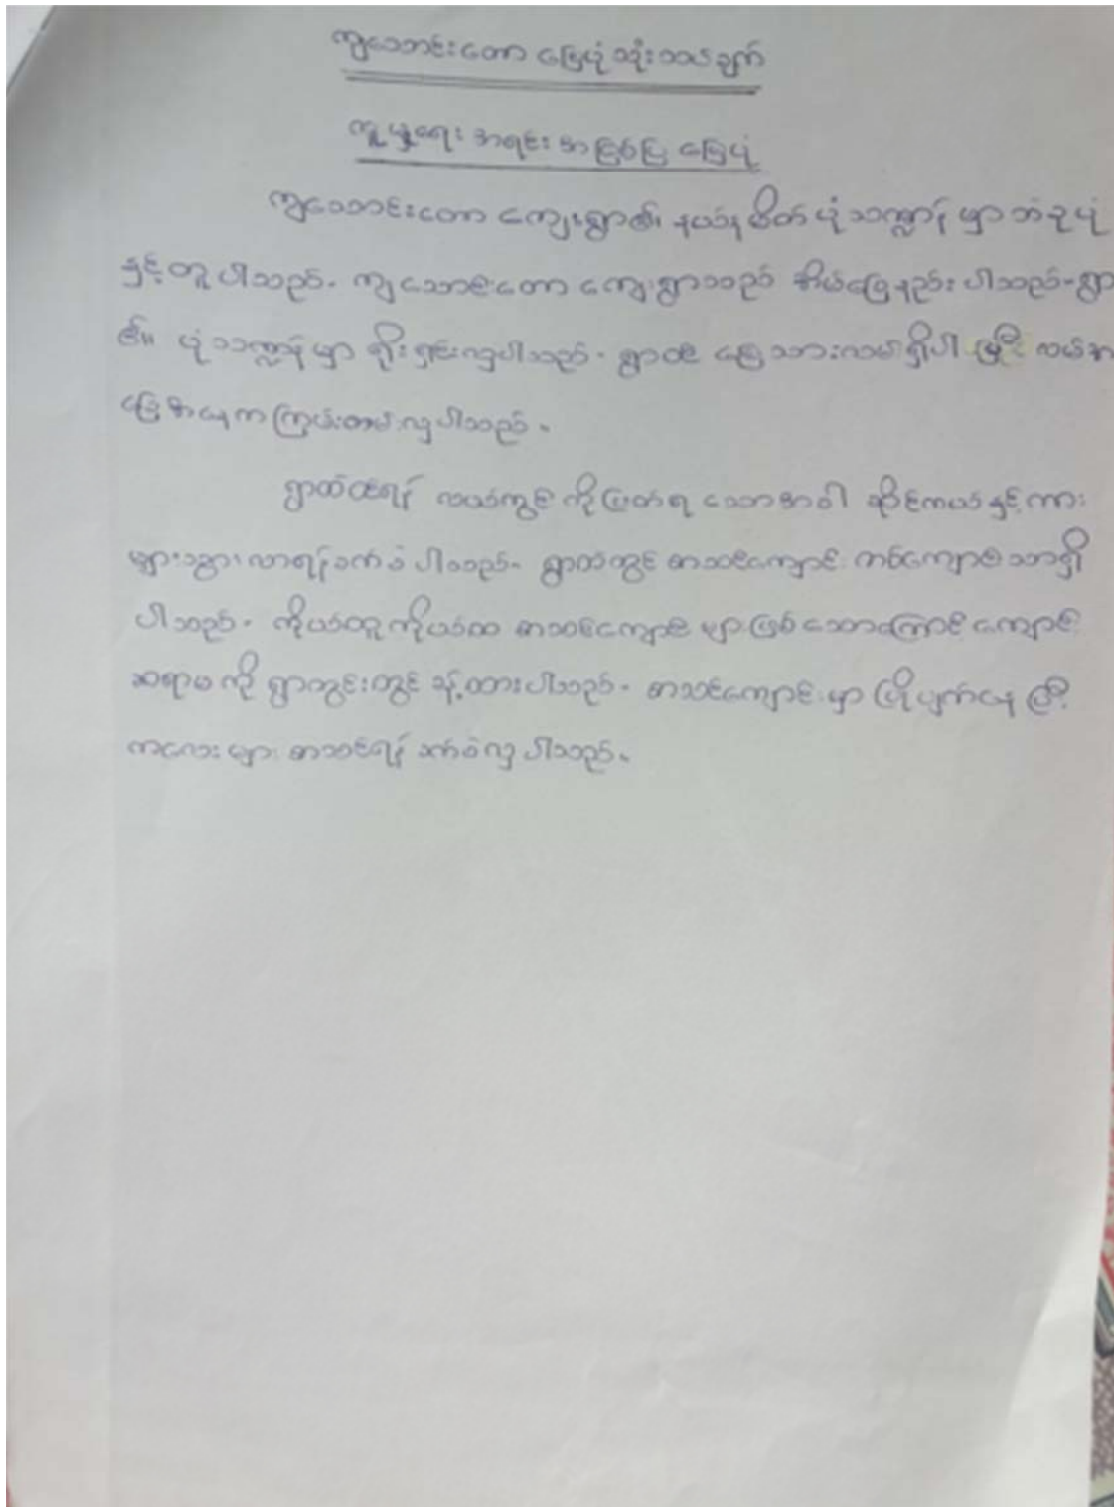 ကျသောင်းတော မြေပုံ သုံးသပ်ချက်
လူမှုရေး အရင်းအမြစ်ပြ မြေပုံ
ကျသောင်းတော ကျေးရွာ၏ နယ်နမိတ် ပုံသဏ္ဍာန် မှာ ဘဲဥပုံ
နှင့် တူ ပါသည်။ ကျသောင်းတော ကျေးရွာသည် အိမ်ခြေနည်း ပါသည်။ ရွာ
၏ ပုံသဏ္ဍာန် မှာ ရိုးရှင်းလှပါသည်။ ရွာထဲ မြေသားလမ်းရှိပါ ပြီး လမ်းအ
ခြေအနေက ကြမ်းတမ်းလှပါသည်။
ရွာထဲထိရန် လယ်ကွင်း ကိုဖြတ်ရ သောအခါ ဆိုင်ကယ်နှင့် ကား
များသွားလာရန်ခက်ခဲ ပါသည်။ ရွာထဲတွင် စာသင်ကျောင်း တစ်ကျောင်းသာရှိ
ပါသည်။ ကိုယ်ထူကိုယ်ထ စာသင်ကျောင်း များဖြစ်သောကြောင့် ကျောင်း
ဆရာမ ကို ရွာတွင်းတွင် ခန့်ထားပါသည်။ စာသင်ကျောင်းမှာ ပြိုပျက်နေ ပြီး
ကလေးများ စာသင်ရန် ခက်ခဲလှ ပါသည်။